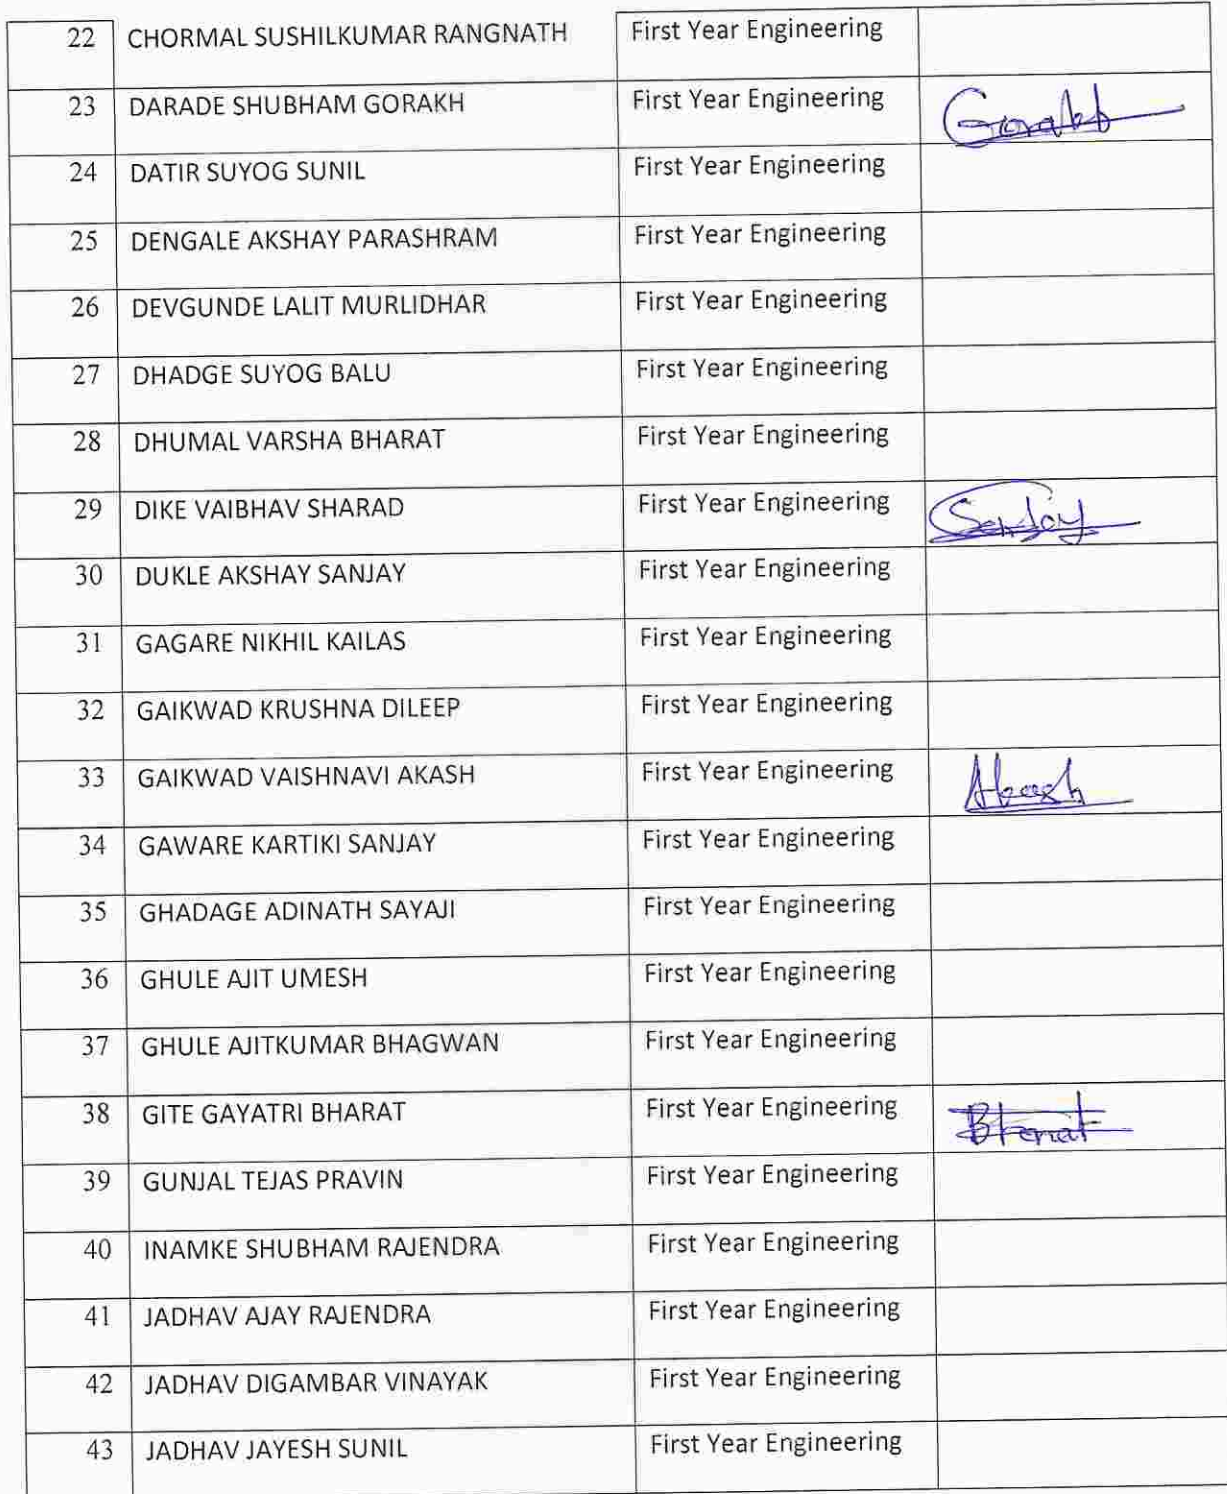 22 CHORMAL SUSHILKUMAR RANGNATH First Year Engineering
23 DARADE SHUBHAM GORAKH First Year Engineering Gorakh
24 DATIR SUYOG SUNIL First Year Engineering
25 DENGALE AKSHAY PARASHRAM First Year Engineering
26 DEVGUNDE LALIT MURLIDHAR First Year Engineering
27 DHADGE SUYOG BALU First Year Engineering
28 DHUMAL VARSHA BHARAT First Year Engineering
29 DIKE VAIBHAV SHARAD First Year Engineering Sanjay
30 DUKLE AKSHAY SANJAY First Year Engineering
31 GAGARE NIKHIL KAILAS First Year Engineering
32 GAIKWAD KRUSHNA DILEEP First Year Engineering
33 GAIKWAD VAISHNAVI AKASH First Year Engineering Akash
34 GAWARE KARTIKI SANJAY First Year Engineering
35 GHADAGE ADINATH SAYAJI First Year Engineering
36 GHULE AJIT UMESH First Year Engineering
37 GHULE AJITKUMAR BHAGWAN First Year Engineering
38 GITE GAYATRI BHARAT First Year Engineering Bharat
39 GUNJAL TEJAS PRAVIN First Year Engineering
40 INAMKE SHUBHAM RAJENDRA First Year Engineering
41 JADHAV AJAY RAJENDRA First Year Engineering
42 JADHAV DIGAMBAR VINAYAK First Year Engineering
43 JADHAV JAYESH SUNIL First Year Engineering